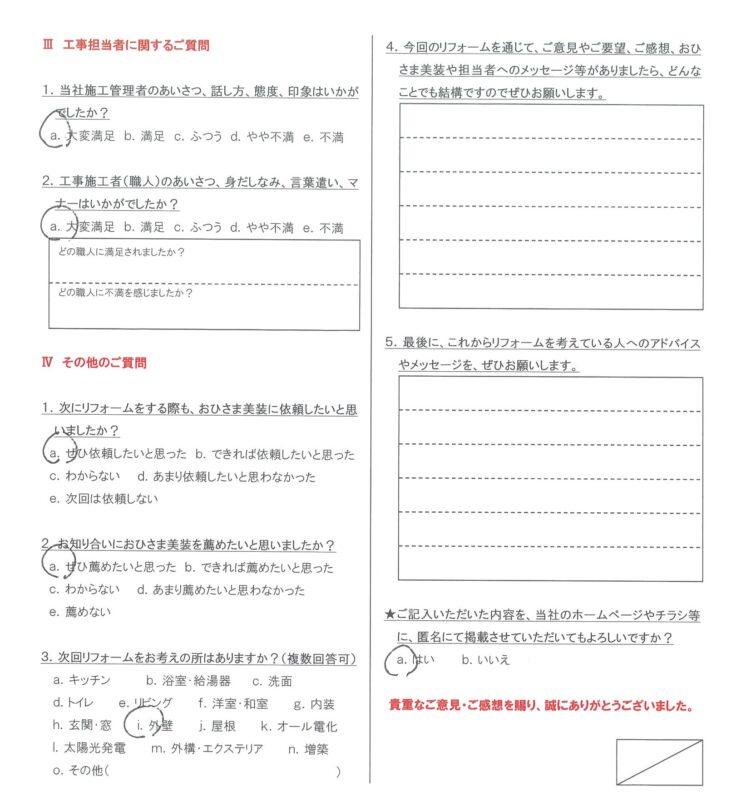 Ⅲ 工事担当者に関するご質問
1. 当社施工管理者のあいさつ、話し方、態度、印象はいかが
でしたか？
a. 大変満足 b. 満足 c. ふつう d. やや不満 e. 不満
2. 工事施工者(職人)のあいさつ、身だしなみ、言葉遣い、マ
ナーはいかがでしたか？
a. 大変満足 b. 満足 c. ふつう d. やや不満 e. 不満
どの職人に満足されましたか？
どの職人に不満を感じましたか？
Ⅳ その他のご質問
1. 次にリフォームをする際も、おひさま美装に依頼したいと思
いましたか？
a. ぜひ依頼したいと思った b. できれば依頼したいと思った
c. わからない d. あまり依頼したいと思わなかった
e. 次回は依頼しない
2. お知り合いにおひさま美装を薦めたいと思いましたか？
a. ぜひ薦めたいと思った b. できれば薦めたいと思った
c. わからない d. あまり薦めたいと思わなかった
e. 薦めない
3. 次回リフォームをお考えの所はありますか？(複数回答可)
a. キッチン b. 浴室・給湯器 c. 洗面
d. トイレ e. リビング f. 洋室・和室 g. 内装
h. 玄関・窓 i. 外壁 j. 屋根 k. オール電化
l. 太陽光発電 m. 外構・エクステリア n. 増築
o. その他( )
4. 今回のリフォームを通じて、ご意見やご要望、ご感想、おひ
さま美装や担当者へのメッセージ等がありましたら、どんな
ことでも結構ですのでぜひお願いします。
5. 最後に、これからリフォームを考えている人へのアドバイス
やメッセージを、ぜひお願いします。
★ご記入いただいた内容を、当社のホームページやチラシ等
に、匿名にて掲載させていただいてもよろしいですか？
a. はい b. いいえ
貴重なご意見・ご感想を賜り、誠にありがとうございました。